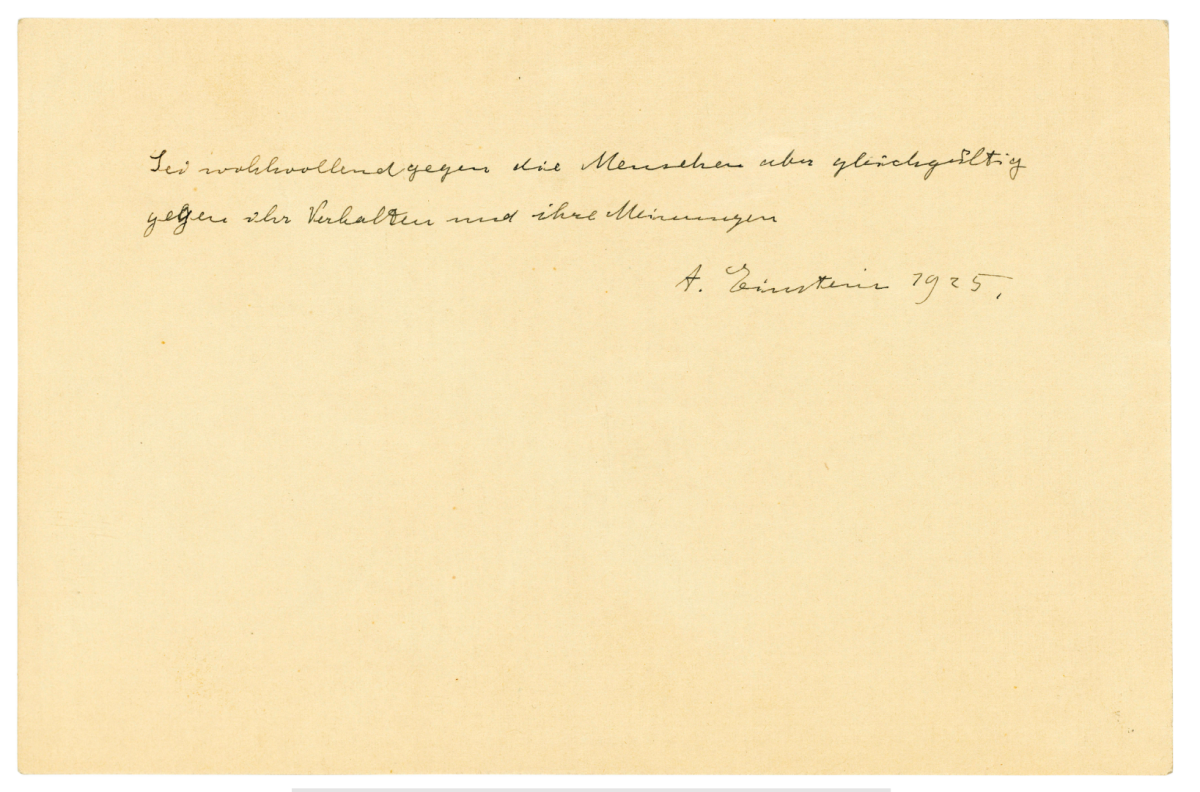 Sei wohlwollend gegen die Menschen aber gleichgültig
gegen ihr Verhalten und ihre Meinungen
A. Einstein 1925.